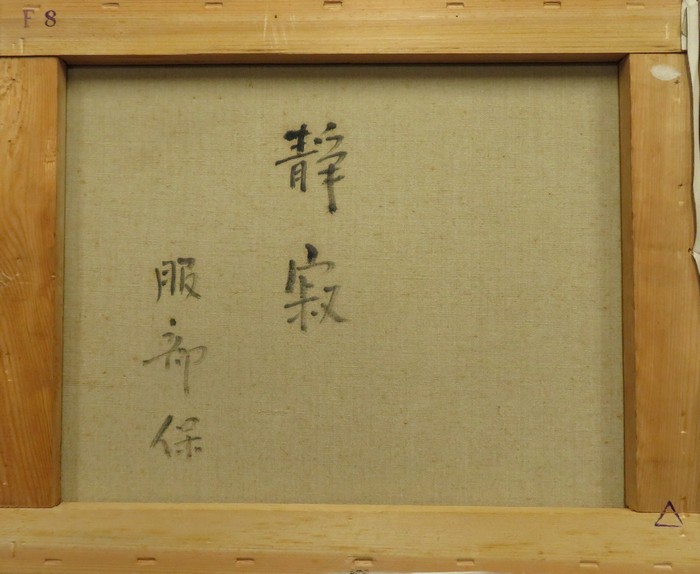 F8
靜寂
服部保